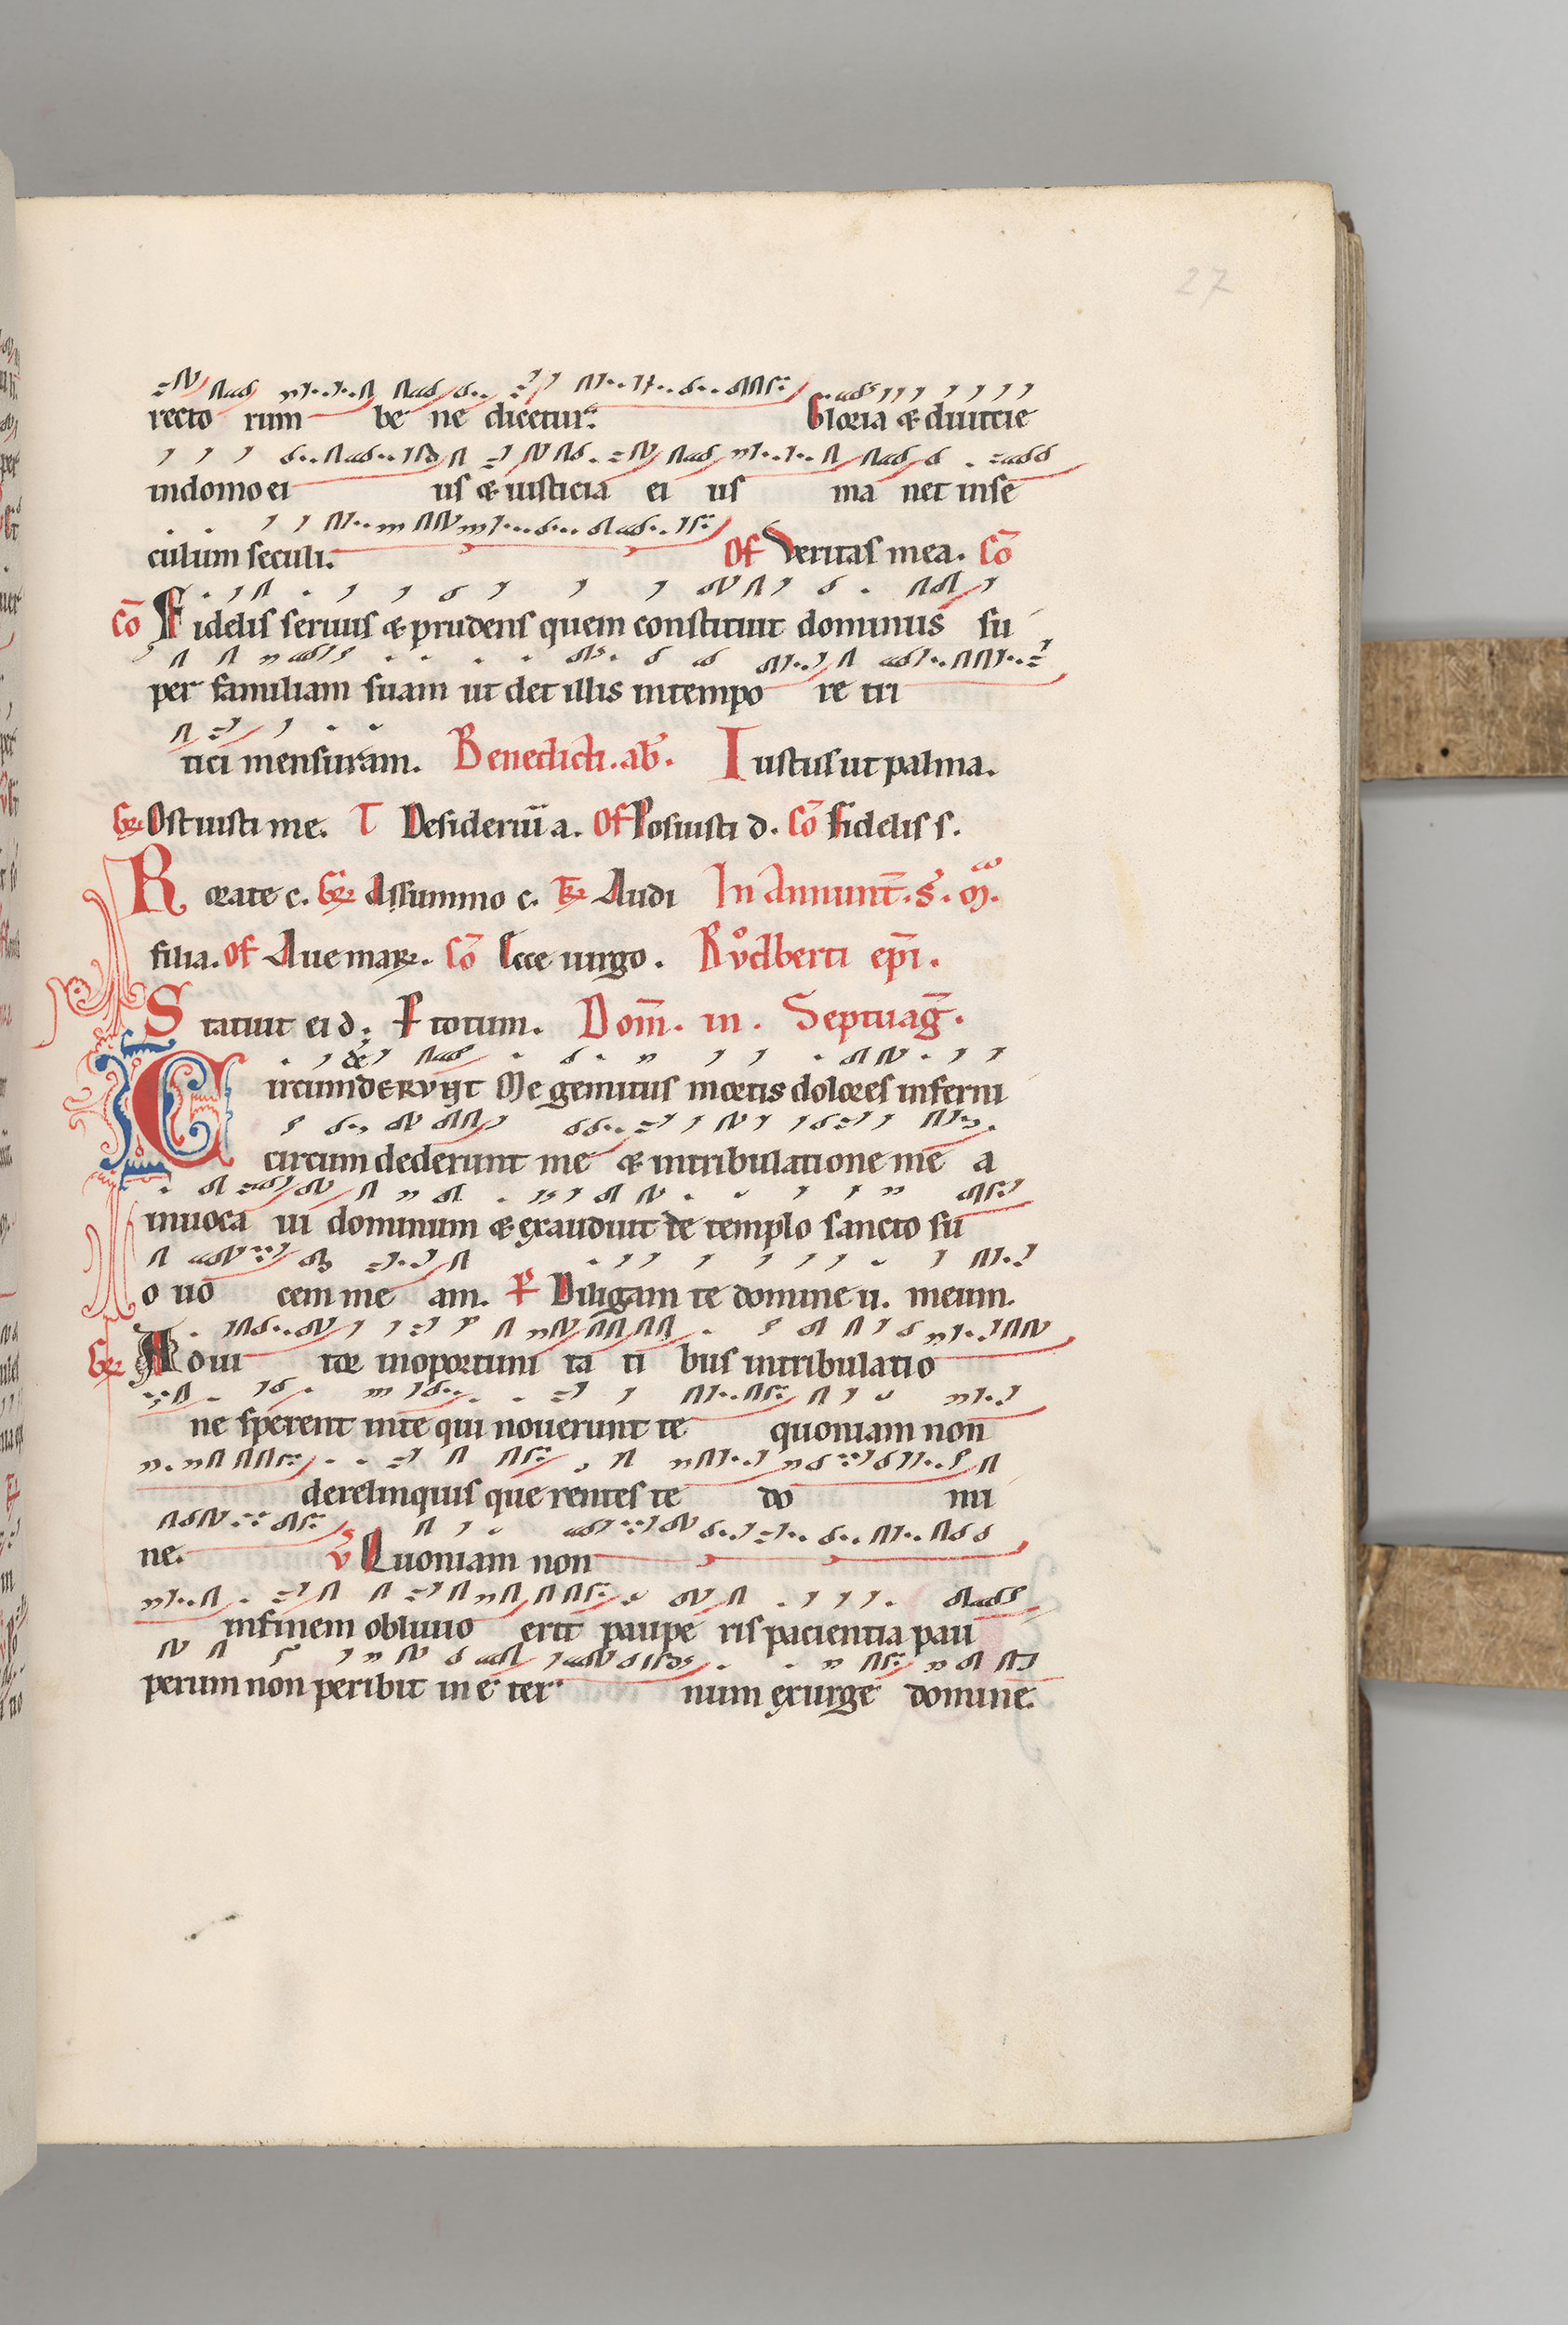 27
recto rum be ne dicetur. Gloria & diuicie
indomo ei us & iusticia ei us ma net inse
culum seculi. Of Veritas mea. Co̅
Co̅ Fidelis seruus & prudens quem constituit dominus su
per familiam suam ut det illis intempo re tri
tici mensuram. Benedicti. ab̅. Iustus ut palma.
Gr̅ Ostuisti me. T Desideriu̅ a. Of Posuisti d. Co̅ Fidelis s.
Rorate c. Gr̅ Assummo c. Tr̅ Audi In Annunt̅. S. M.
filia. Of Aue mar. Co̅ Ecce uirgo. Růdberti ep̅i.
Statuit ei d. P totum. Dom̅. in. Septuag̅.
Circumderunt Me gemitus mortis dolores inferni
circum dederunt me & intribulatione me a
inuoca ui dominum & exaudiuit de templo sancto su
o uo cem me am. P Diligam te domine u. meum.
Gr̅ Adiu tor inoportuni ta ti bus intribulatio
ne sperent inte qui nouerunt te quoniam non
derelinquis que rentes te do mi
ne. V Quoniam non
infinem obliuio erit paupe ris paciencia pau
perum non peribit in e ter num exurge domine.